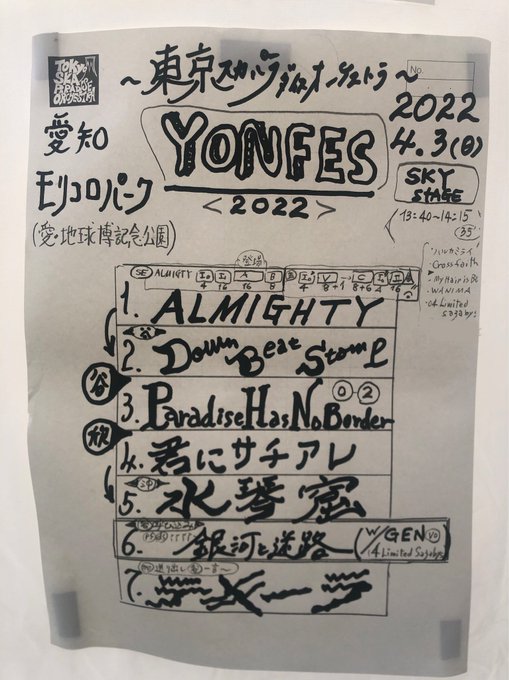 TOKYO
SKA
PARADISE
ORCHESTRA
～東京スカパラダイスオーケストラ～
No.
2022
4.3(日)
愛知
モリコロパーク
(愛・地球博記念公園)
YONFES
<2022>
SKY
STAGE
13:40~14:15
(35')
・ハルカミライ
・Crossfaith
▶
・My Hair is Bad
・WANIMA
・04 Limited
Sazabys
登場
SE ALMIGHTY I₀ I₁ A B
4 16 16 8 4 8+1 8+6 4 16
1. ALMIGHTY
谷
2. Down Beat Stomp
谷
3. Paradise Has No Border ⓪-②
欣
4. 君にサチアレ
沖
5. 水琴窟
6. 銀河と迷路 (w/GEN Vo
04 Limited Sazabys)
7.